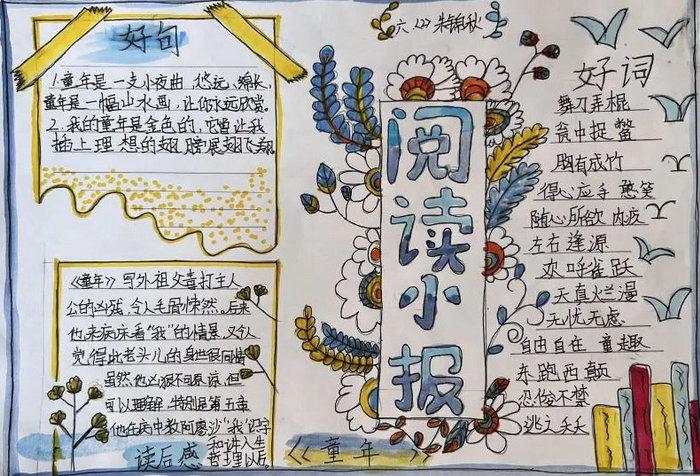 好句
1.童年是一支小夜曲,悠远、绵长,
童年是一幅山水画,让你永远欣赏。
2.我的童年是金色的,它曾让我
插上理想的翅膀展翅飞翔。
六.(2) 朱锦秋
阅读小报
好词
舞刀弄棍
瓮中捉鳖
胸有成竹
得心应手 憨笑
随心所欲 内疚
左右逢源
欢呼雀跃
天真烂漫
无忧无虑
自由自在 童趣
东跑西颠
忍俊不禁
逃之夭夭
《童年》写外祖父毒打主人
公的凶残,令人毛骨悚然。后来
他来病床看“我”的情景,又令人
觉得此老头儿的身世很同情
虽然他凶狠不可原谅,但
可以理解 特别是第五章
他在病中教阿廖沙“我”识字
和讲人生
哲理以后。
读后感
《童年》